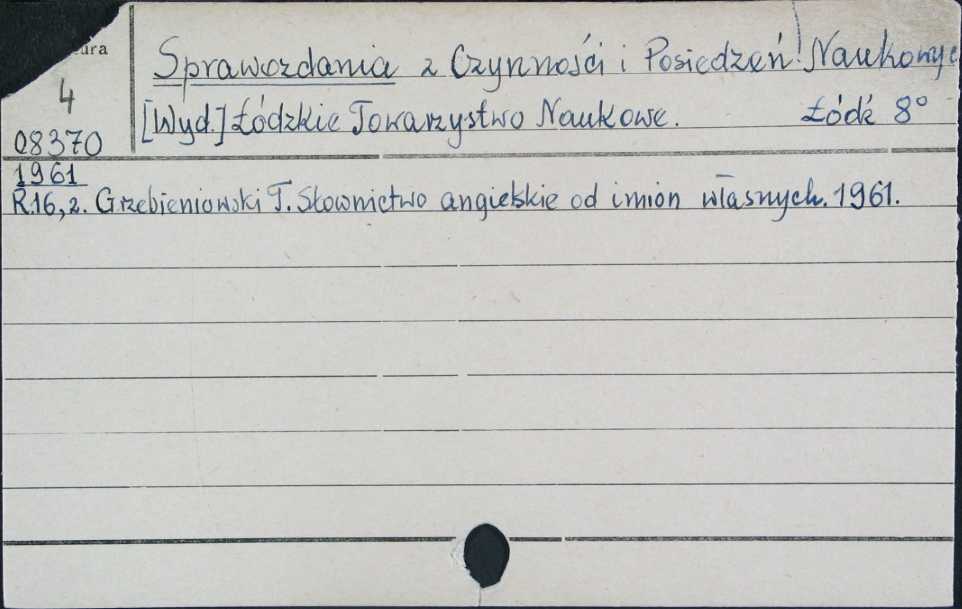 ura
4
08370
Sprawozdania z Czynności i Posiedzeń Naukowyc
[Wyd.] Łódzkie Towarzystwo Naukowe. Łódź 8°
1961
R.16, z. Grzebieniowski T. Słownictwo angielskie od imion własnych. 1961.